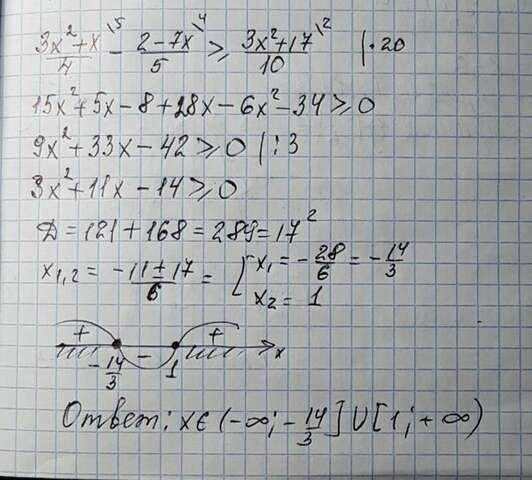 (3x²+x)/4 \5 - (2-7x)/5 \4 ≥ (3x²+17)/10 \2 | · 20
15x²+5x-8+28x-6x²-34≥0
9x²+33x-42≥0 | : 3
3x²+11x-14≥0
Д=121+168=289=17²
x₁,₂ = (-11±17)/6 = [ x₁ = -28/6 = -14/3
x₂ = 1
+ - + x
-14/3 1
Ответ: x∈(-∞; -14/3]∪[1; +∞)